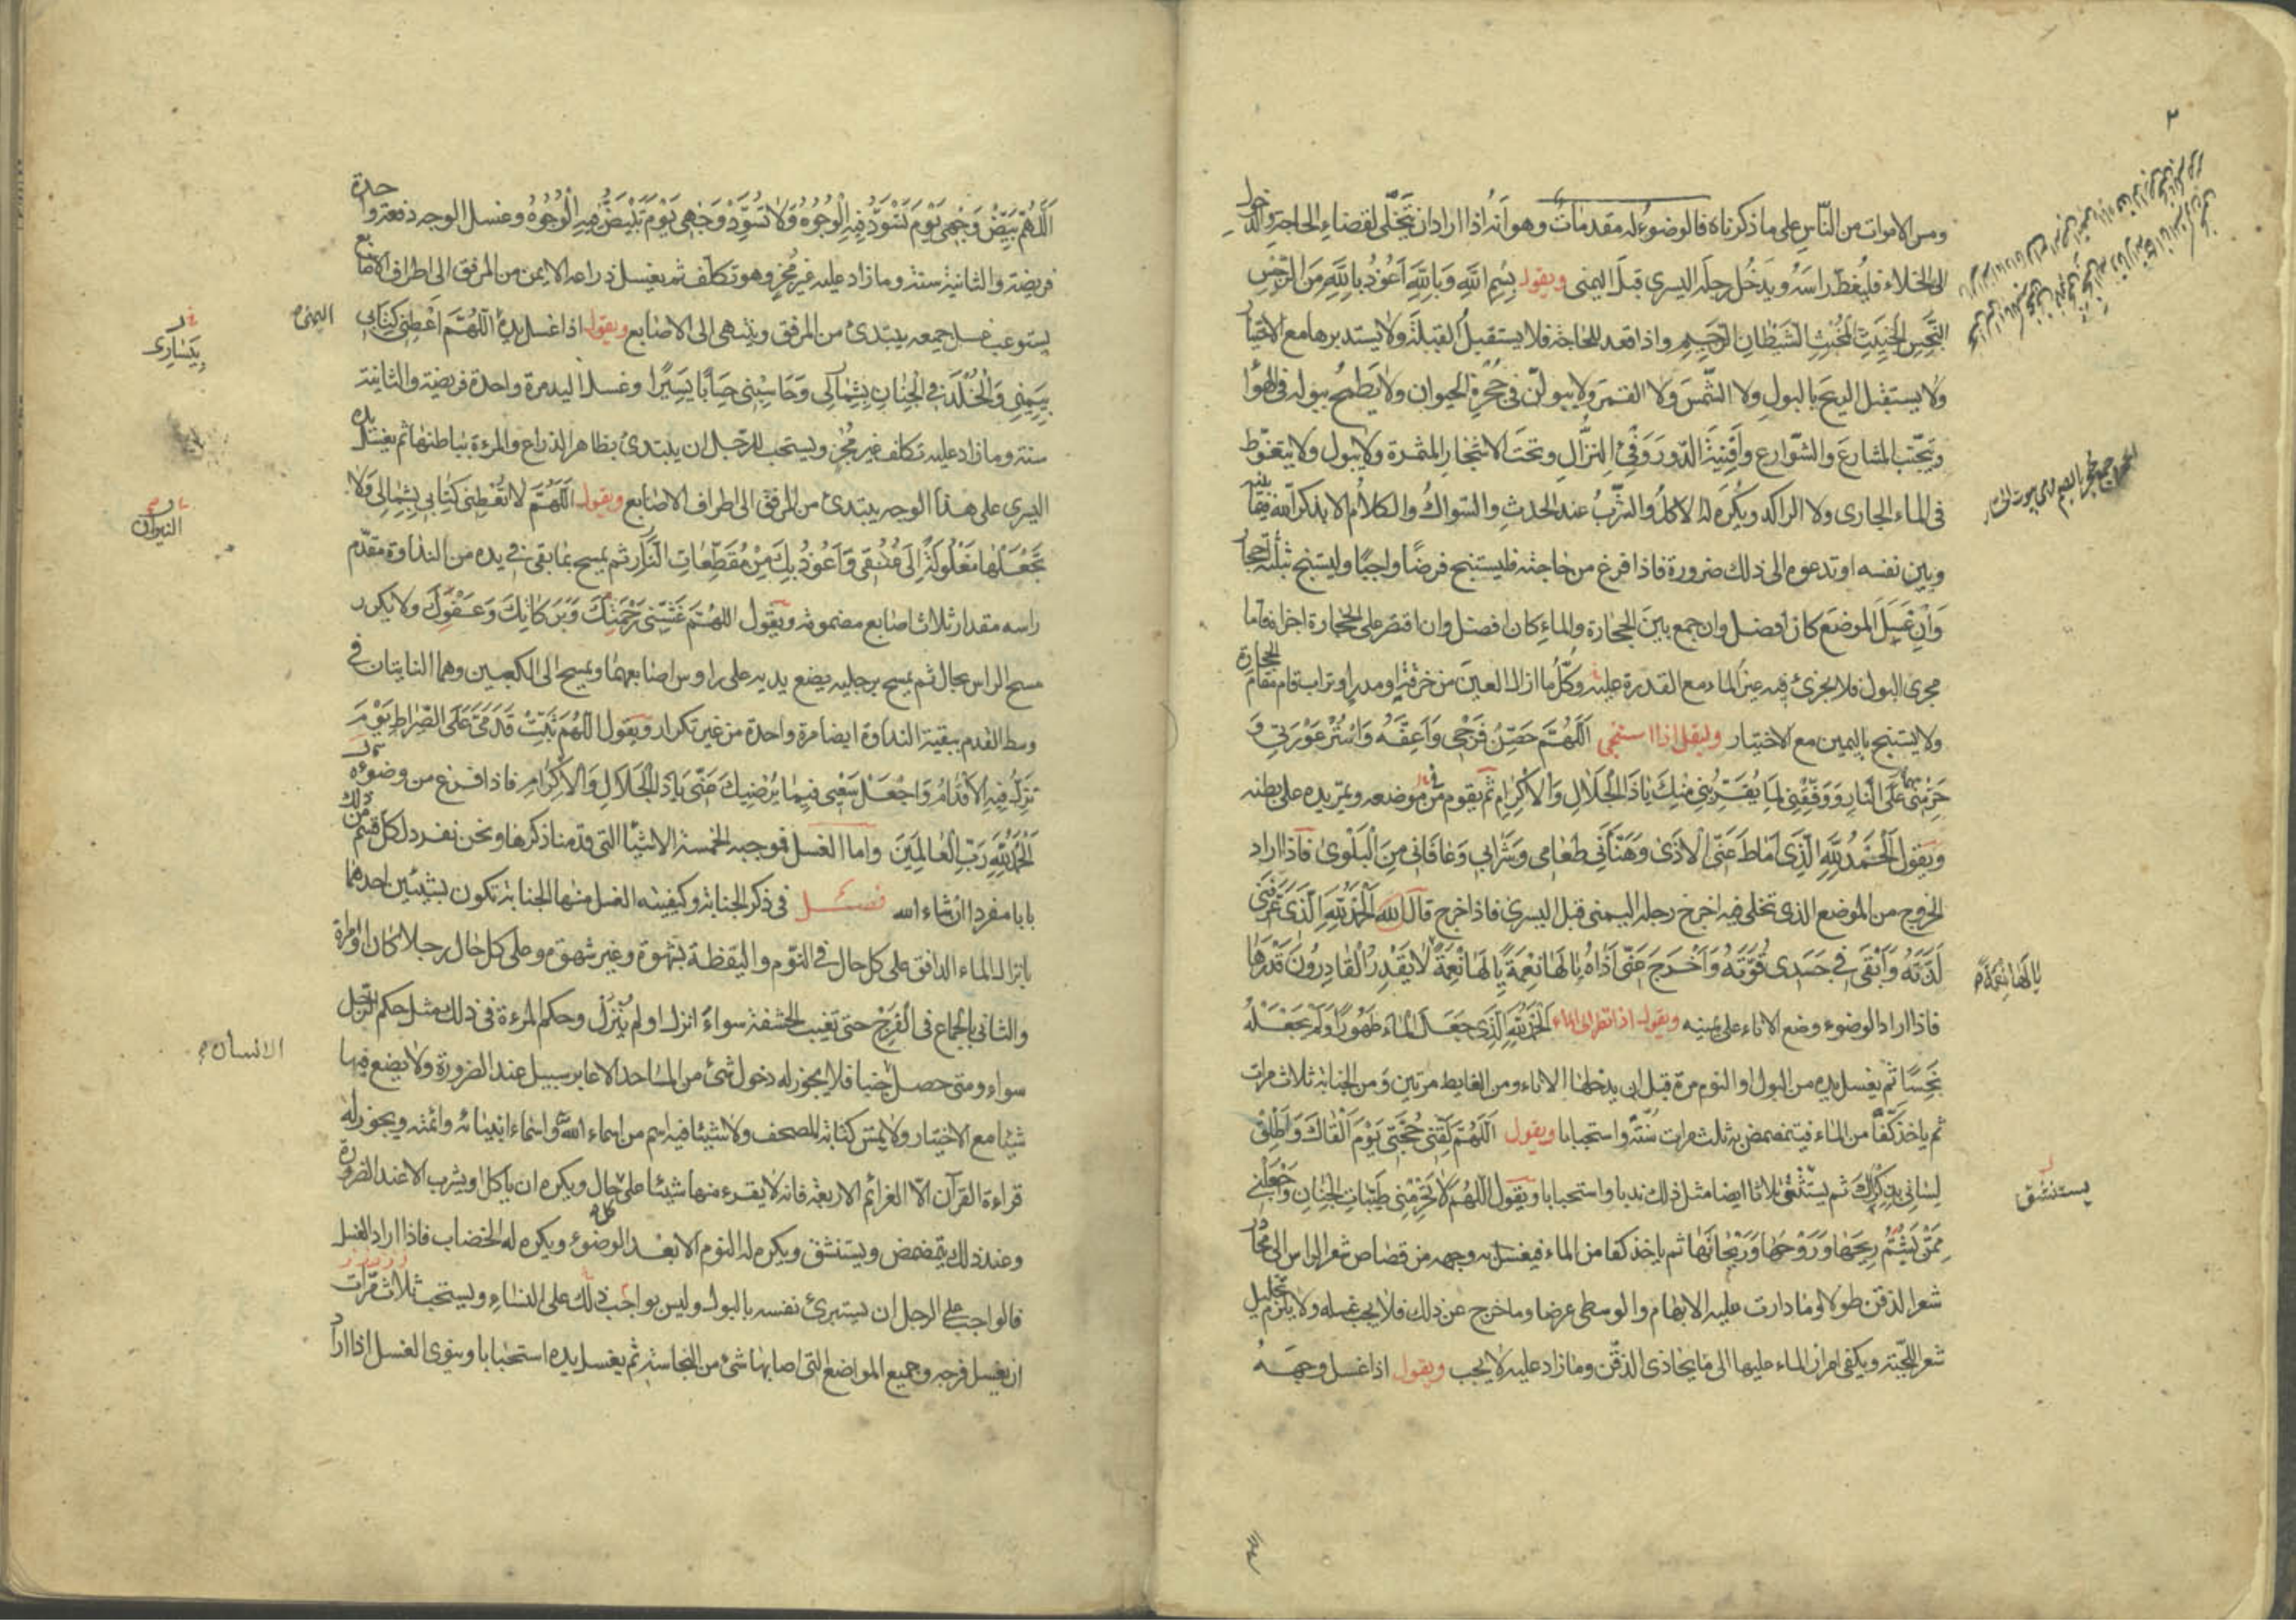 ٢
ومس الاموات من الناس على ما ذكرناه فالوضوء له مقدمات وهو انه اذا اراد ان يتخلّى لقضاء الحاجة والدخول
الى الخلاء فليغطّ راسَهُ ويدخُل رجلَه اليسرى قبلَ اليمنى ويقول بِسْمِ اللّهِ وَبِاللّهِ اَعُوذُ بِاللّهِ مِنَ الرِّجْسِ
النِّجْسِ الْخَبِيثِ الْمُخْبِثِ الشَّيْطَانِ الرَّجِيمِ واذا قعد للحاجة فلا يستقبل القبلة ولا يستدبرها مع الاختيار
ولا يستقبل الريح بالبول ولا الشّمسَ ولا القمرَ ولا يبولنّ في جُحْرَةِ الحيوان ولا يَطمحُ ببوله في الهوا
ويتجنّب المشارعَ والشّوارعَ وأَفْنِيَةَ الدّور وَفَيْءَ النزّالِ وتحتَ الاشجار المثمرة ولا يبول ولا يتغوّط
فى الماء الجارى ولا الراكد ويكره له الاكلُ والشّربُ عند الحدثِ والسّواكُ والكلامُ الا بذكر اللّه فيما بينه
وبين نفسه او تدعوه الى ذلك ضرورة فاذا فرغ من حاجته فليستنج فرضًا واجبًا وليستنج بثلثة احجار
وَاِنْ غَسَلَ الموضعَ كان افضل وان جمع بين الحجارة والماء كان افضل وان اقتصر على الحجارة اجزاه فاما
مجرى البول فلا يجزئ فيه غير الماء مع القدرة عليه وكلّ ما ازال العين من خرقة او مدر او تراب قام مقام الحجارة
ولا يستنج باليمين مع الاختيار وليقل اذا استنجى اَللّهُمَّ حَصِّنْ فَرْجِى وَاَعِفَّهُ وَاسْتُرْ عَوْرَتِى وَ
حَرِّمْهُمَا عَلَى النَّارِ وَوَفِّقْنِى لِمَا يُقَرِّبُنِى مِنْكَ يَاذَا الْجَلَالِ وَالْاِكْرَامِ ثم يقوم من موضعه ويمرّ يده على بطنه
ويقول اَلْحَمْدُ لِلّهِ الَّذِى اَمَاطَ عَنِّى الْاَذَى وَهَنَّأَنِى طَعَامِى وَشَرَابِى وَعَافَانِى مِنَ الْبَلْوَى فاذا اراد
الخروج من الموضع الذى تخلى فيه اخرج رجله اليمنى قبل اليسرى فاذا خرج قال اَلْحَمْدُ لِلّهِ الَّذِى عَرَّفَنِى
لَذَّتَهُ وَاَبْقَى فِى جَسَدِى قُوَّتَهُ وَاَخْرَجَ عَنِّى اَذَاهُ يَا لَهَا نِعْمَةً يَا لَهَا نِعْمَةً لَا يَقْدِرُ الْقَادِرُونَ قَدْرَهَا
يا لها نعمة م
فاذا اراد الوضوء وضع الاناء على يمينه ويقول اذا نظر الى الماء اَلْحَمْدُ لِلّهِ الَّذِى جَعَلَ الْمَاءَ طَهُورًا وَلَمْ يَجْعَلْهُ
نَجِسًا ثم يغسل يده من البول او النوم مرة قبل ان يدخلها الاناء ومن الغايط مرتين ومن الجنابة ثلاث مرات
ثم ياخذ كفّا من الماء فيتمضمض به ثلث مرات سُنّةً واستحبابا ويقول اَللّهُمَّ لَقِّنِى حُجَّتِى يَوْمَ اَلْقَاكَ وَاَطْلِقْ
لِسَانِى بِذِكْرِكَ ثم يستنثق ثلاثا ايضا مثل ذلك ندبا واستحبابا ويقول اَللّهُمَّ لَا تُحَرِّمْنِى طَيِّبَاتِ الْجِنَانِ وَاجْعَلْنِى
يستنشق
مِمَّنْ يَشُمُّ رِيحَهَا وَرَوْحَهَا وَرَيْحَانَهَا ثم ياخذ كفا من الماء فيغسل به وجهه من قصاص شعر الراس الى محادر
شعر الذقن طولا وما دارت عليه الابهام والوسطى عرضا وما خرج عن ذلك فلا يجب غسله ولا يلزم تخليل
شعر اللّحية ويكفى امرار الماء عليها الى ما يحاذى الذقن وما زاد عليه لا يجب ويقول اذا غسل وجهَهُ
اَللّهُمَّ بَيِّضْ وَجْهِى يَوْمَ تَسْوَدُّ فِيهِ الْوُجُوهُ وَلَا تُسَوِّدْ وَجْهِى يَوْمَ تَبْيَضُّ فِيهِ الْوُجُوهُ وغسل الوجه دفعة واحدة
فريضة والثانية سنة وما زاد عليه غير مُجْزٍ وهو تكلّف ثم يغسل ذراعه الايمن من المرفق الى اطراف الاصابع
يستوعب غسل جميعه يبتدئ من المرفق وينتهى الى الاصابع ويقول اذا غسل يده اَللّهُمَّ اَعْطِنِى كِتَابِى
اليمنى
بيسارى
بِيَمِينِى وَالْخُلْدَ فِى الْجِنَانِ بِشِمَالِى وَحَاسِبْنِى حِسَابًا يَسِيرًا وغسل اليد مرة واحدة فريضة والثانية
سنة وما زاد عليه تكلف غير مُجْزٍ ويستحب للرّجل ان يبتدئ بظاهر الذراع والمرءة بباطنها ثم يغسل يده
اليسرى على هذا الوجه يبتدئ من المرفق الى اطراف الاصابع ويقول اَللّهُمَّ لَا تُعْطِنِى كِتَابِى بِشِمَالِى وَلَا
النيران
تَجْعَلْهَا مَغْلُولَةً اِلَى عُنُقِى وَاَعُوذُ بِكَ مِنْ مُقَطِّعَاتِ النَّارِ ثم يمسح بما بقى فى يده من النداوة مقدّم
راسه مقدار ثلاث اصابع مضمومة ويقول اَللّهُمَّ غَشِّنِى رَحْمَتَكَ وَبَرَكَاتِكَ وَعَفْوَكَ ولا يكرر
مسح الراس بحال ثم يمسح برجليه يضع يديه على راوس اصابعهما ويمسح الى الكعبين وهما النابتان فى
وسط القدم ببقية النداوة ايضا مرة واحدة من غير تكرار ويقول اَللّهُمَّ ثَبِّتْ قَدَمَىَّ عَلَى الصِّرَاطِ يَوْمَ
تَزِلُّ فِيهِ الْاَقْدَامُ وَاجْعَلْ سَعْيِى فِيمَا يُرْضِيكَ عَنِّى يَاذَا الْجَلَالِ وَالْاِكْرَامِ فاذا فرغ من وضوءه
اَلْحَمْدُ لِلّهِ رَبِّ الْعَالَمِينَ واما الغسل فموجبه الخمسة الاشيا التى قدمنا ذكرها ونحن نفرد لكل قسم من ذلك
بابا مفردا ان شاء الله فصل فى ذكر الجنابة وكيفيته الغسل منها الجنابة تكون بشيئين احدهما
بانزال الماء الدافق على كل حال فى النّوم واليقظة بشهوة وغير شهوة وعلى كل حال رجلا كان او امرة
والثانى بالجماع فى الفَرْجِ حتى تغيب الحشفة سواءً انزل او لم يُنْزِل وحكم المرءة فى ذلك مثل حكم الرّجل
الانسان
سواء ومتى حصل جنبا فلا يجوز له دخول شئ من المساجد الا عابر سبيل عند الضرورة ولا يضع فيها
شيئا مع الاختيار ولا يمسّ كتابة المصحف ولا شيئا فيه اسم من اسماء اللّه واسماء انبيائه وائمته ويجوز له
قراءة القرآن الّا العزائم الاربعة فانه لا يقرء منها شيئا على حال ويكره ان ياكل او يشرب الا عند الضرورة
وعند ذلك يتمضمض ويستنشق ويكره له النوم الا بعد الوضوء ويكره له الخضاب فاذا اراد الغسل
فالواجب على الرجل ان يستبرئ نفسه بالبول وليس بواجب ذلك على النساء ويستحب ثلاث مرّات
ان يغسل فرجه وجميع المواضع التى اصابها شئ من النجاسة ثم يغسل يده استحبابا وينوى الغسل اذا اراد